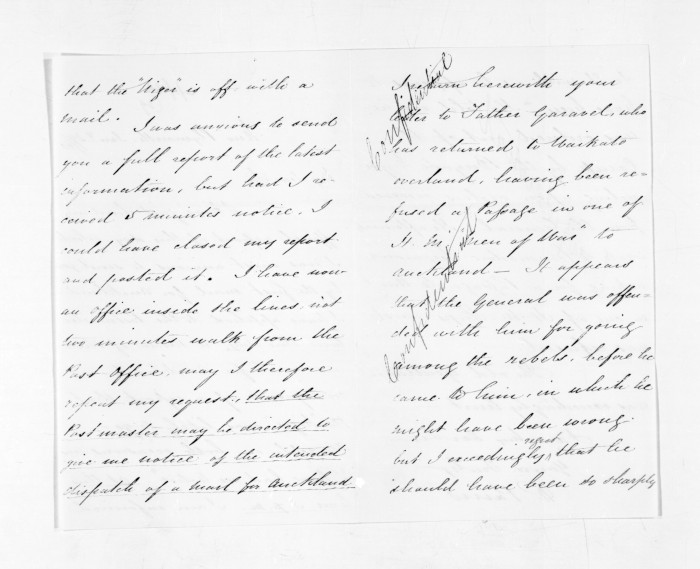 that the "Niger" is off with a
mail. I was anxious to send
you a full report of the latest
information, but had I re-
ceived 5 minutes notice, I
could have closed my report
and posted it. I have now
an office inside the lines, not
two minutes walk from the
Post Office. may I therefore
repeat my request, that the
Postmaster may be directed to
give me notice of the intended
dispatch of a mail for Auckland.
Confidential
I return herewith your
letter to Father Garavel, who
has returned to Waikato
overland, having been re-
fused a Passage in one of
H. M. "Men of War" to
Auckland — It appears
that the General was offen-
ded with him for going
among the rebels, before he
came to him, in which he
might have been wrong.
but I exceedingly regret that he
should have been so sharply
Confidential